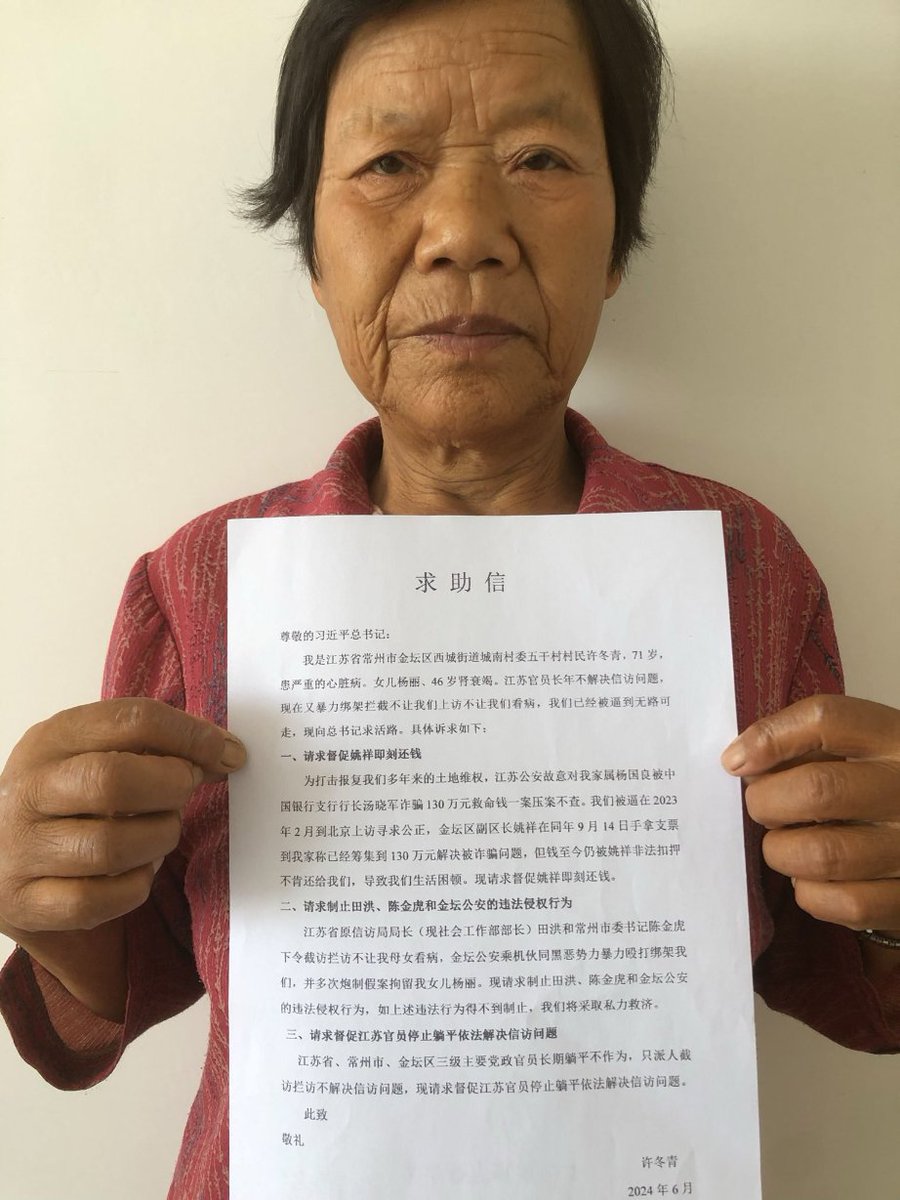 求助信
尊敬的习近平总书记：
我是江苏省常州市金坛区西城街道城南村委五干村村民许冬青，71 岁，
患严重的心脏病。女儿杨丽、46 岁肾衰竭。江苏官员长年不解决信访问题，
现在又暴力绑架拦截不让我们上访不让我们看病，我们已经被逼到无路可
走，现向总书记求活路。具体诉求如下：
一、请求督促姚祥即刻还钱
为打击报复我们多年来的土地维权，江苏公安故意对我家属杨国良被中
国银行支行行长汤晓军诈骗 130 万元救命钱一案压案不查。我们被逼在 2023
年 2 月到北京上访寻求公正，金坛区副区长姚祥在同年 9 月 14 日手拿支票
到我家称已经筹集到 130 万元解决被诈骗问题，但钱至今仍被姚祥非法扣押
不肯还给我们，导致我们生活困顿。现请求督促姚祥即刻还钱。
二、请求制止田洪、陈金虎和金坛公安的违法侵权行为
江苏省原信访局局长（现社会工作部部长）田洪和常州市委书记陈金虎
下令截访拦访不让我母女看病，金坛公安乘机伙同黑恶势力暴力殴打绑架我
们，并多次炮制假案拘留我女儿杨丽。现请求制止田洪、陈金虎和金坛公安
的违法侵权行为，如上述违法行为得不到制止，我们将采取私力救济。
三、请求督促江苏官员停止躺平依法解决信访问题
江苏省、常州市、金坛区三级主要党政官员长期躺平不作为，只派人截
访拦访不解决信访问题，现请求督促江苏官员停止躺平依法解决信访问题。
此致
敬礼
许冬青
2024 年 6 月